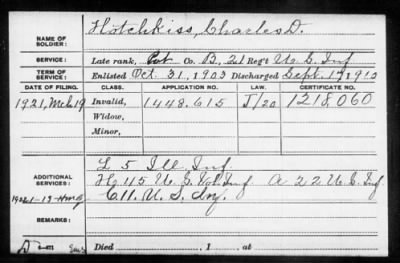 NAME OF SOLDIER: Hotchkiss, Charles D.
SERVICE: Late rank, Pvt Co. B, 21 Reg't U.S. Inf
TERM OF SERVICE: Enlisted Oct. 31, 1903 Discharged Sept. 17, 1910
DATE OF FILING. CLASS. APPLICATION NO. LAW. CERTIFICATE NO.
1921, Mch 19 Invalid, 1448.615 J/20 1218.060
Widow,
Minor,
ADDITIONAL SERVICES: L 5 Ill. Inf.
H 115 U.S. Vol. Inf A 22 U.S. Inf.
C 11. U.S. Inf.
REMARKS:
Died , 1 , at